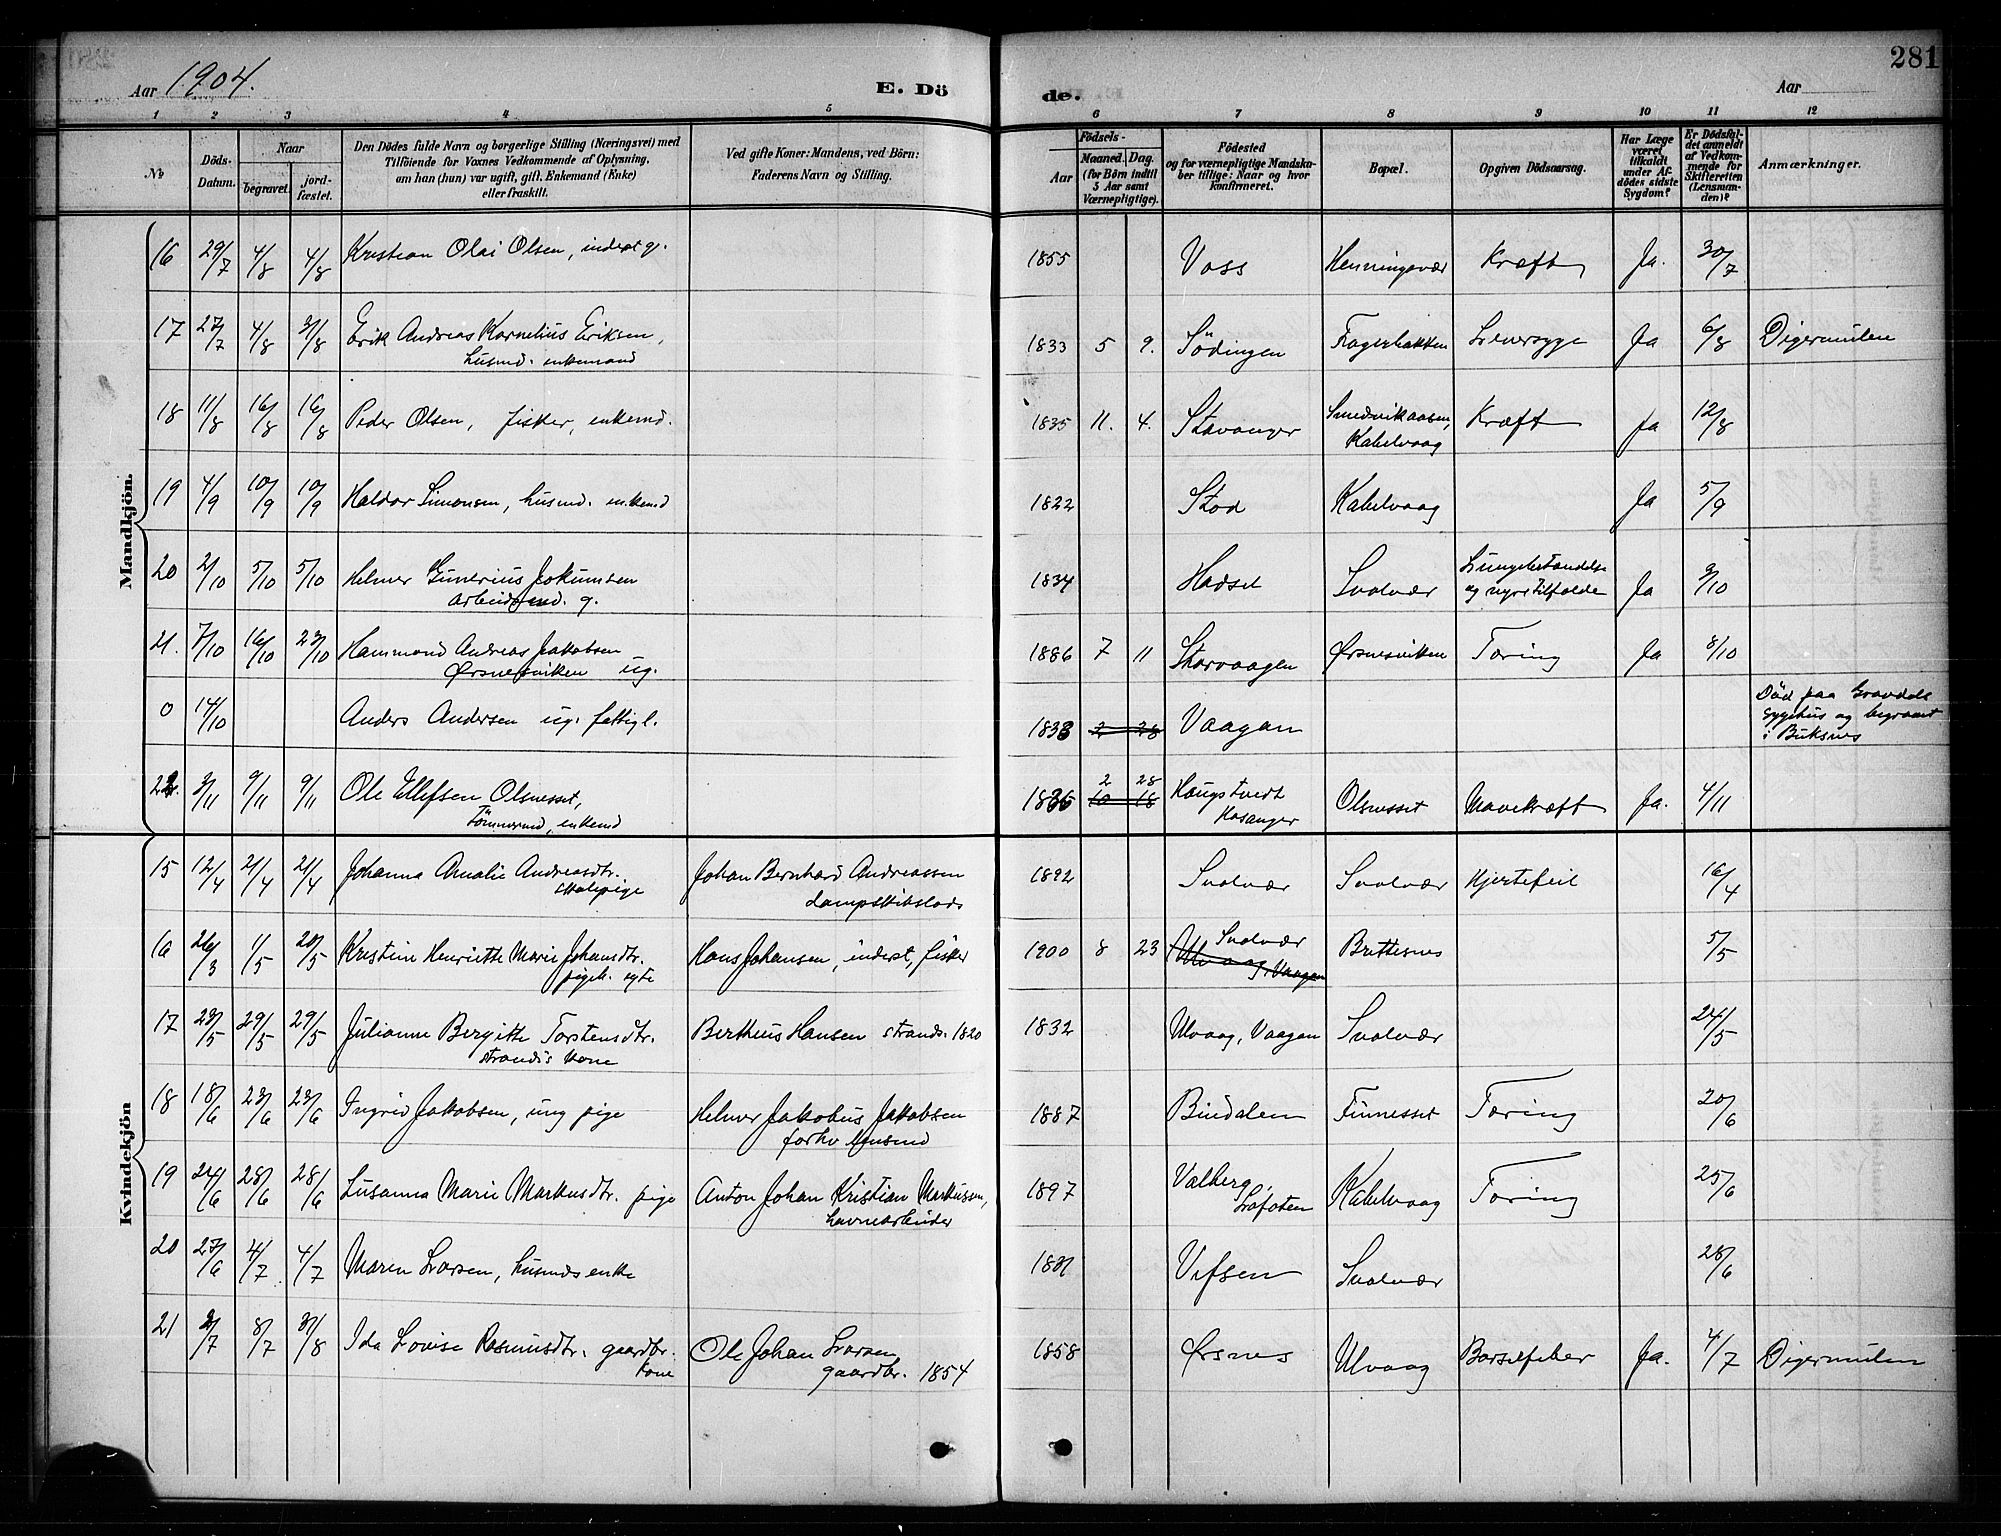 281
Aar 1904.
E. Dö
de.
Aar
1 2 3 4 5 6 7 8 9 10 11 12
No
Döds-Datum.
Naar
begravet.
jord-fæstet.
Den Dödes fulde Navn og borgerlige Stilling (Næringsvei) med
Tilföiende for Voxnes Vedkommende af Oplysning,
om han (hun) var ugift, gift, Enkemand (Enke)
eller fraskilt.
Ved gifte Koner: Mandens, ved Börn:
Faderens Navn og Stilling.
Födsels-
Aar
Maaned. Dag.
(for Börn indtil
5 Aar samt
Værnepligtige).
Födested
og for værnepligtige Mandska-
ber tillige: Naar og hvor
konfirmeret.
Bopæl.
Opgiven Dödsaarsag.
Har Læge
været
tilkaldt
under Af-
dödes sidste
Sygdom?
Er Dödsfal-
det anmeldt
af Vedkom-
mende for
Skifteretten
(Lensman-
den)?
Anmærkninger.
Mandkjön.
16 29/7 4/8 4/8 Kristian Olai Olsen, inderst g. 1855 Voss Henningsvær Kræft Ja. 30/7
17 27/7 4/8 31/8 Erik Andreas Kornelius Eriksen, 1833 5 9. Lödingen Fagerbakken Leversyge Ja 6/8 Digermulen
husmd. enkemand
18 11/8 16/8 16/8 Peder Olsen, fisker, enkemd. 1835 11. 4. Stavanger Smedvikaasen, Kabelvaag Kræft Ja 12/8
19 4/9 10/9 10/9 Haldor Simonsen, husmd. enkemd 1822 Stod Kabelvaag Ja 5/9
20 2/10 5/10 5/10 Helmer Gunerius Jokumsen 1834 Hadsel Svolvær Lungebetændelse Ja 3/10
arbeidsmd. g. og nyretilfælde
21. 7/10 16/10 23/10 Hammond Andreas Jakobsen 1886 7 11 Storvaagen Ørsnesviken Tæring Ja 8/10
Ørsnesviken ug.
0 14/10 Anders Andersen ug. fattigl. 1833 2 28 Vaagan Död paa Gravdals
sygehus og begravet
i Buksnes
22. 3/11 9/11 9/11 Ole Ellefsen Olsnesset, 1836 10 18 2 28 Haugstvedt Hosanger Olsnesset Mavekræft Ja. 4/11
tömmermd, enkemd
Kvindekjön
15 12/4 21/4 21/4 Johanna Amalie Andreasdtr. Johan Bernhard Andreassen 1892 Svolvær Svolvær Hjertefeil 16/4
skolepige dampskibslods
16 26/3 1/5 20/5 Kristine Henriette Marie Johansdtr. Hans Johansen, inderst, fisker 1900 8 23 Ulvaag, Vaagan Svolvær Brettesnes 5/5
pigeb. egte
17 23/5 29/5 29/5 Julianne Bergitte Torstensdtr. Bertheus Hansen strands. 1820 1832 Ulvaag, Vaagan Svolvær 24/5
strands kone
18 18/6 23/6 23/6 Ingrid Jakobsen, ung pige Helmer Jakobus Jakobsen 1887 Bindalen Finnesset Tæring 20/6
forhv husmd
19 24/6 28/6 28/6 Susanna Marie Markusdtr. pige Anton Johan Kristian Markussen, 1897 Valberg, Lofoten Kabelvaag Tæring 25/6
havnearbeider
20 27/6 4/7 4/7 Maren Larsen, husmds enke Vefsen Svolvær 28/6
21 2/7 8/7 31/8 Ida Lovise Rasmusdtr. gaardbr. Ole Johan Larsen 1858 Ørsnes Ulvaag Barselfeber Ja. 4/7 Digermulen
kone gaardbr. 1854